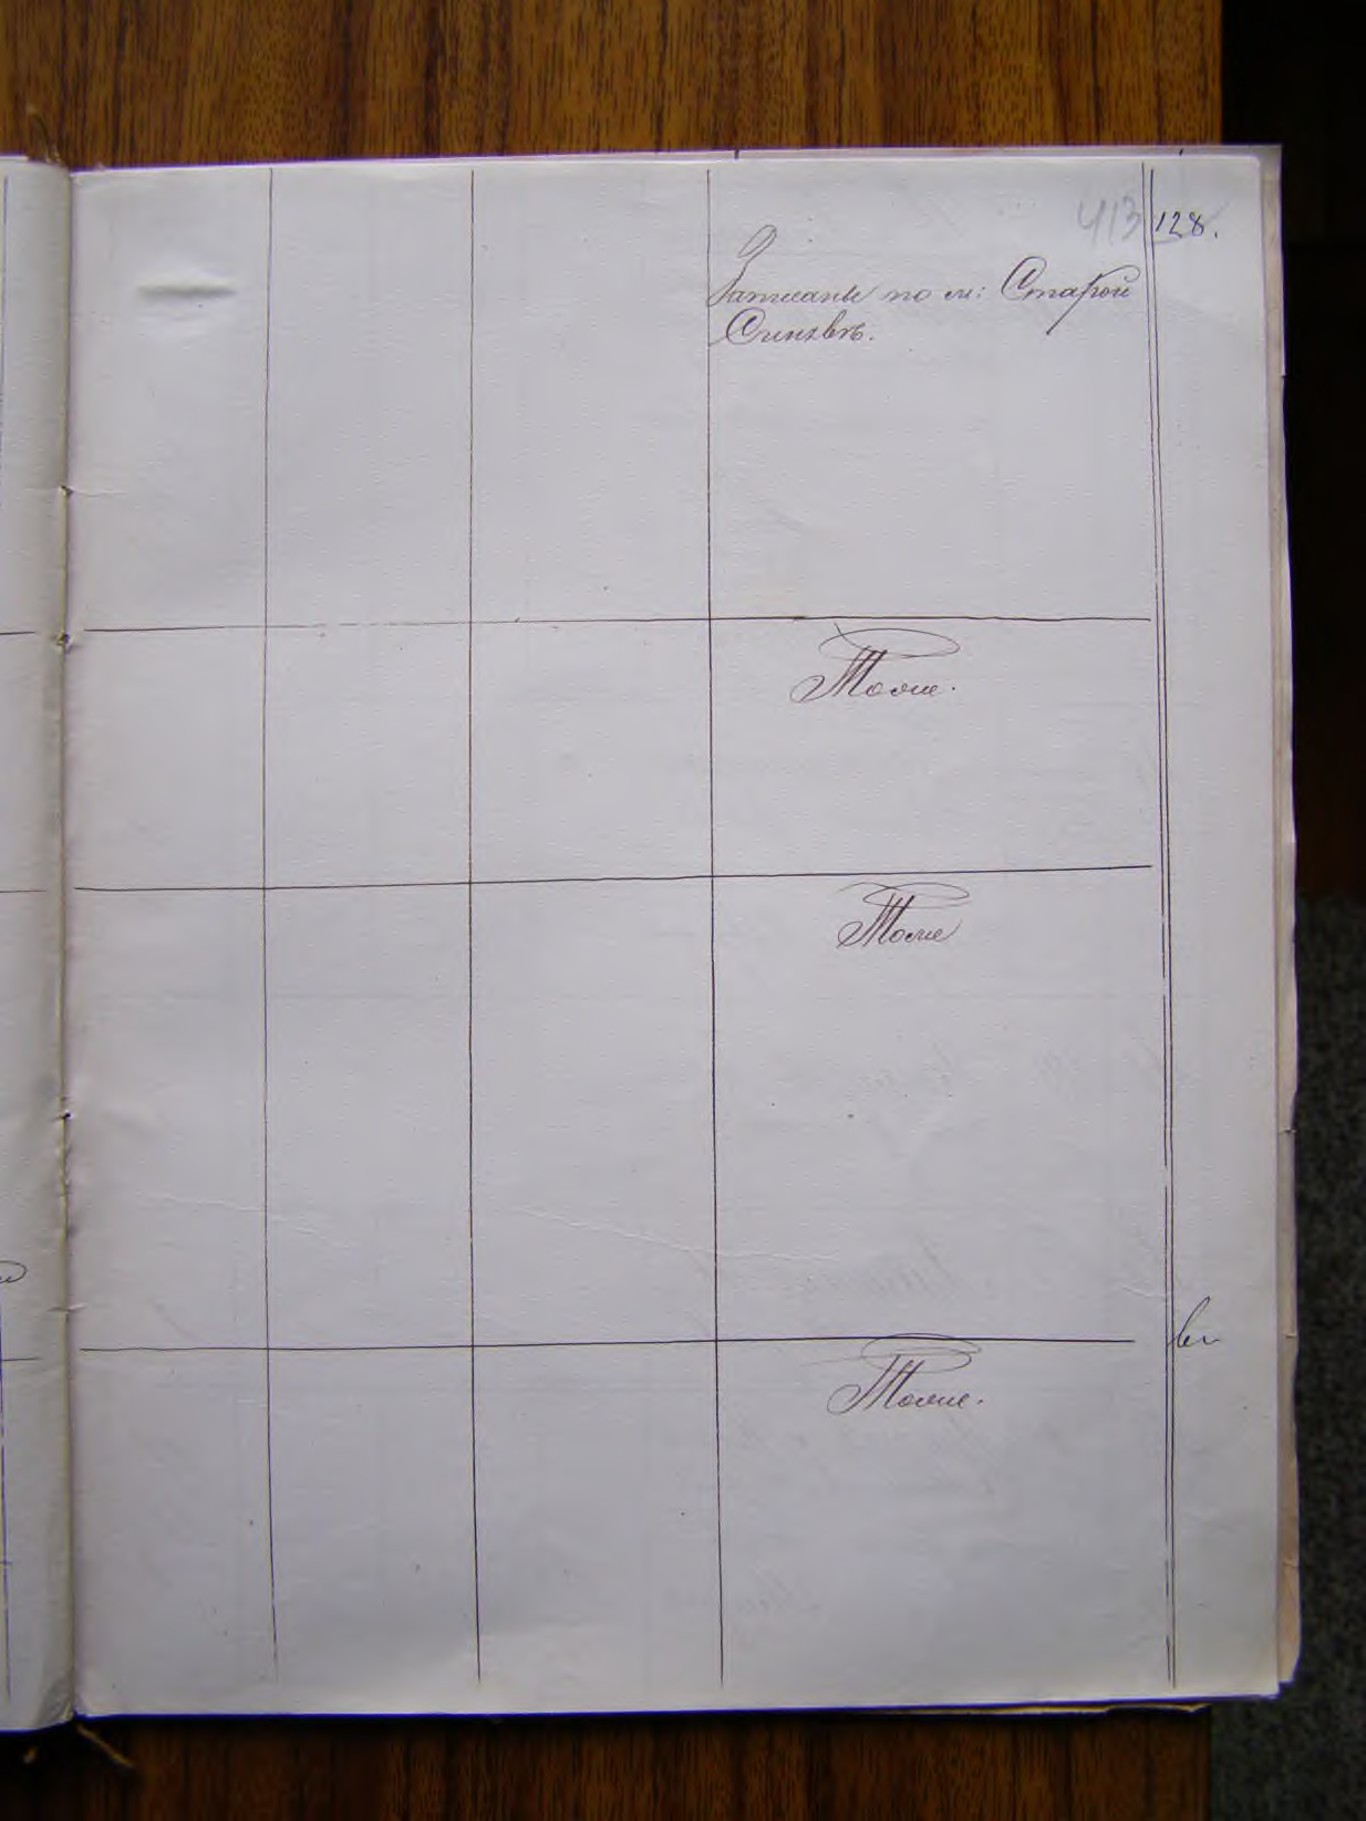 413 128.
Записаны по м: Старой
Синявѣ.
Тоже.
Тоже
Тоже.